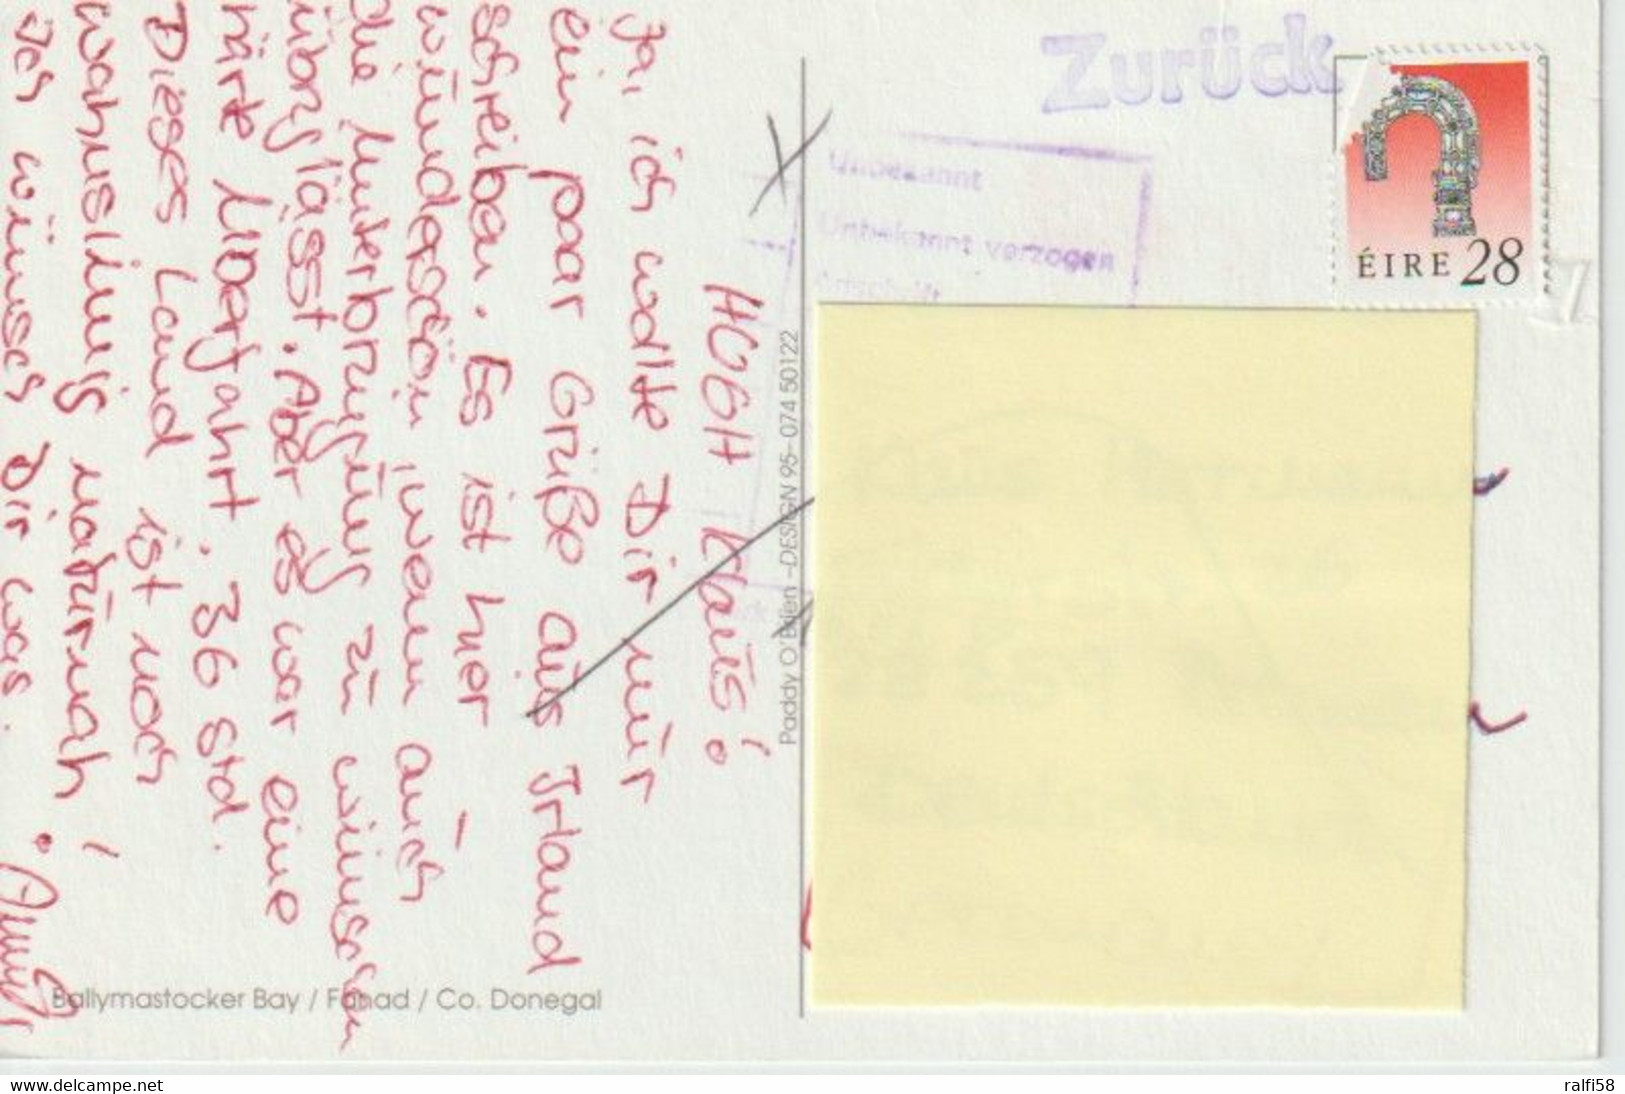 HUGH Klaus!
Ja, ich wollte Dir nur
ein paar Grüße aus Irland
schreiben. Es ist hier
wunderschön, wenn auch
die Unterbringung zu wünschen
übrig lässt. Aber es war eine
härte Überfahrt. 36 Std.
Dieses Land ist noch
wahnsinnig naturnah!
wünsch Dir was.
Zurück
Unbekannt
Unbekannt verzogen
Anschrift
ÉIRE 28
Paddy O'Brien – DESIGN 95 – 074 50122
Ballymastocker Bay / Fanad / Co. Donegal
www.delcampe.net
ralfi58